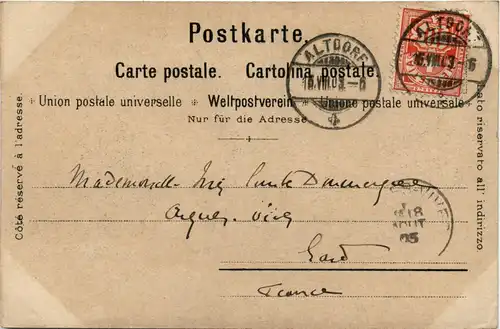 Postkarte.
Carte postale. Cartolina postale.
Union postale universelle * Weltpostverein * Unione postale universale
Nur für die Adresse.
Côté réservé à l'adresse.
Lato riservato all' indirizzo.
ALTDORF
16.VIII.03.-6
ALTDORF
16.VIII.03.-6
Mademoiselle
Aigues-Vives
Gard
France
18
AOUT